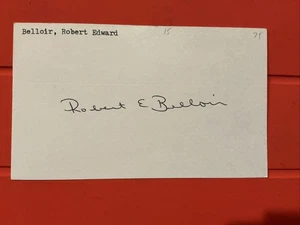 Belloir, Robert Edward 15 75
Robert E Belloir